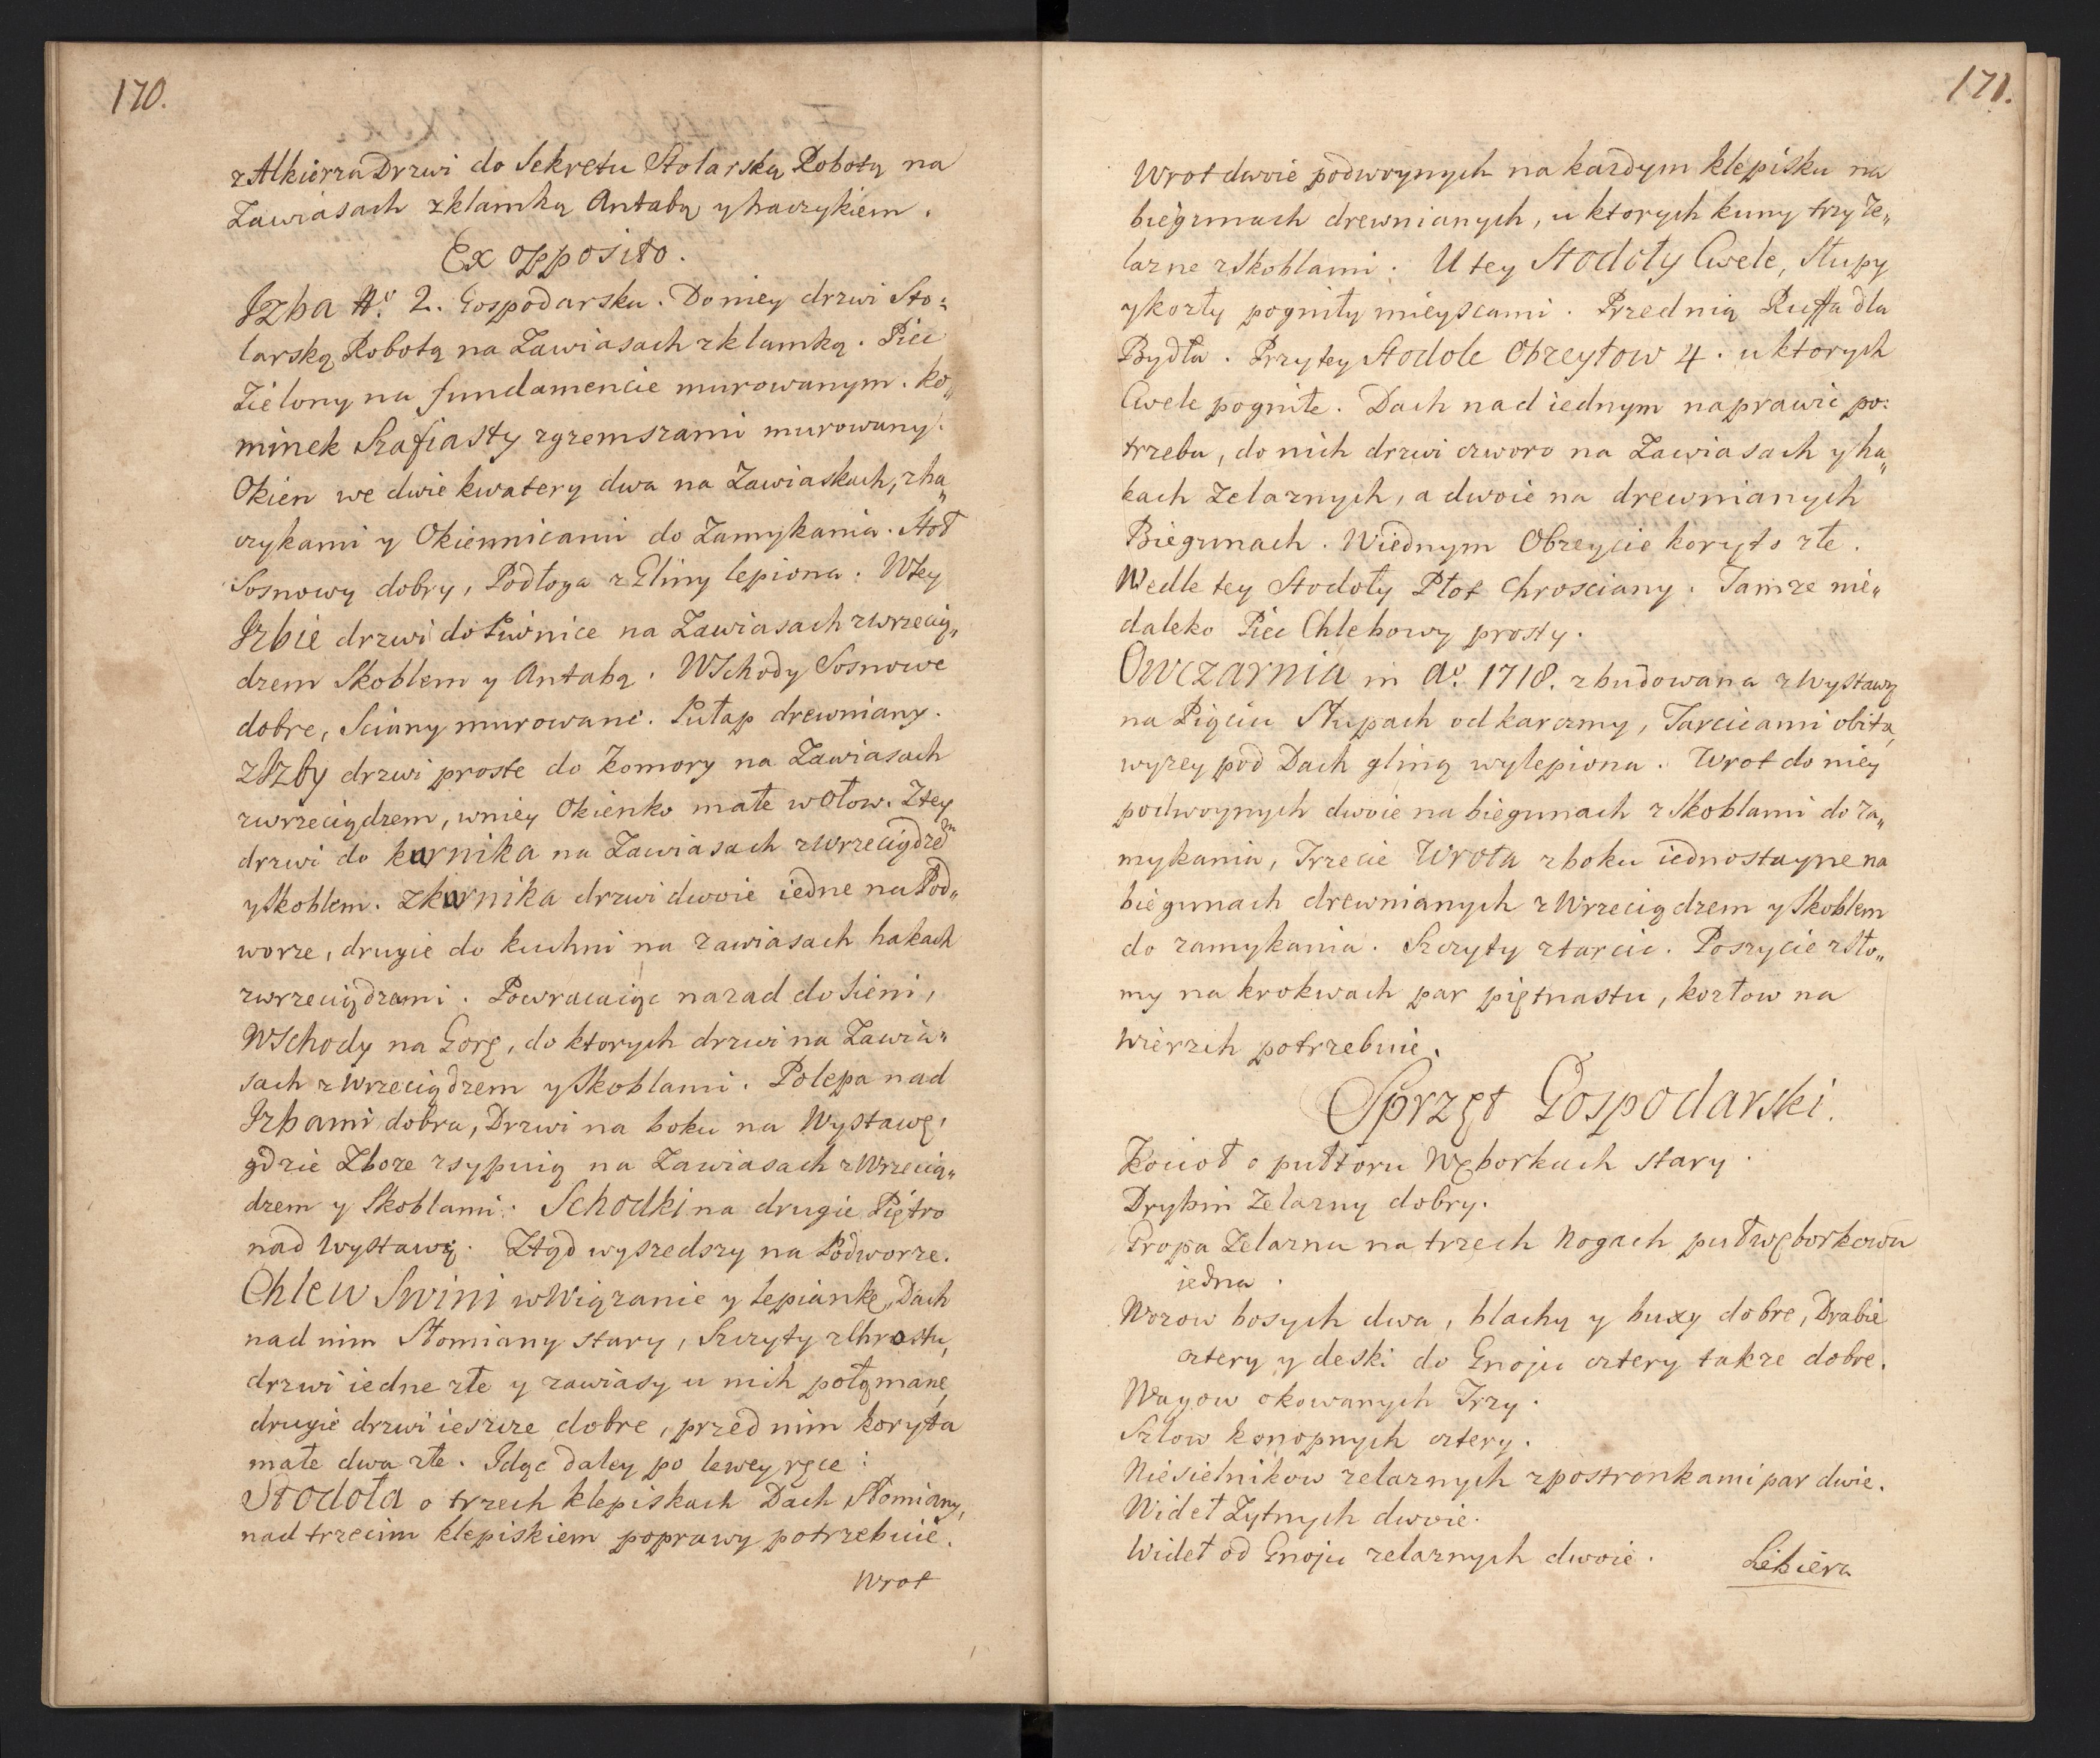 170.
z Alkierza Drzwi do Sekretu Stolarską Robotą na
Zawiasach z klamką Antabą y haczykiem.
Ex opposito.
Izba No. 2. Gospodarska. Do niey drzwi Sto=
larską Robotą na Zawiasach z klamką. Piec
Zielony na fundamencie murowanym. Ko„
minek Szafiasty z gzemszami murowany.
Okien we dwie kwatery dwa na Zawiaskach, z ha„
czykami y Okiennicami do Zamykania. Stoł
Sosnowy dobry, Podłoga z Gliny lepiona. W tey
Izbie drzwi do Piwnice na Zawiasach z wrzecią„
dzem Skoblem y Antabą. Wschody Sosnowe
dobre, Sciany murowane. Pułap drewniany.
z Izby drzwi proste do Komory na Zawiasach
z wrzeciądzem, w niey Okienko małe w ołow. Z tey
drzwi do kurnika na Zawiasach z wrzeciądzem
y Skoblem. z kurnika drzwi dwoie iedne na Pod„
worze, drugie do kuchni na zawiasach hakach
z wrzeciądzami. Powracaiąc nazad do Sieni,
Wschody na Gorę, do ktorych drzwi na Zawia„
sach z Wrzeciądzem y Skoblami. Polepa nad
Izbami dobra, Drzwi na boku na Wystawę,
gdzie Zboze zsypuią na Zawiasach z Wrzecią„
dzem y Skoblami. Schodki na drugie Piętro
nad Wystawę. Ztąd wyszedszy na Podworze.
Chlew Swini w Wiązanie y lepiankę, Dach
nad nim Słomiany stary, Szczyty z Chrostu,
drzwi iedne złe y zawiasy u nich połąmane,
drugie drzwi ieszcze dobre, przed nim koryta
małe dwa złe. Idąc daley po lewey ręce:
Stodoła o trzech klepiskach Dach Słomiany,
nad trzecim klepiskiem poprawy potrzebuie.
Wrot
171.
Wrot dwoie podwoynych na kazdym klepisku na
biegunach drewnianych, u ktorych kuny trzy ze„
lazne z Skoblami. U tey Stodoły Cwele, Słupy
y kozły pogniły mieyscami. Przednią Ruffa dla
Bydła. Przy tey Stodole Obreytow 4. u ktorych
Cwele pogniłe. Dach nad iednym naprawic po=
trzeba, do nich drzwi czworo na Zawiasach y ha„
kach zelaznych, a dwoie na drewnianych
Biegunach. W iednym Obreycie koryto złe.
Wedle tey Stodoły Płot Chrosciany. Tamze nie„
daleko Piec Chlebowy prosty.
Owczarnia in Ao. 1718. zbudowana z Wystawą
na Pięciu Słupach od karczmy, Tarcicami obita,
wyzey pod Dach gliną wylepiona. Wrot do niey
podwoynych dwoie na biegunach z Skoblami do za„
mykania, Trzecie Wrota z boku iednostayne na
biegunach drewnianych z Wrzeciądzem y Skoblem
do zamykania. Szczyty z tarcic. Poszycie z Sło„
my na krokwach par piętnastu, kozłow na
wierzch potrzebuie.
Sprzęt Gospodarski.
Kocioł o pułtoru Węborkach stary.
Drybin zelazny dobry.
Gropa Zelazna na trzech Nogach pułwęborkowa
jedna.
Wozow bosych dwa, blachy y buxy dobre, Drabie
cztery y deski do Gnoju cztery takze dobre.
Wagow okowanych Trzy.
Szlow konopnych cztery.
Niesielnikow zelaznych z postronkami par dwie.
Wideł Zytnych dwoie.
Wideł od Gnoju zelaznych dwoie.
Siekiera